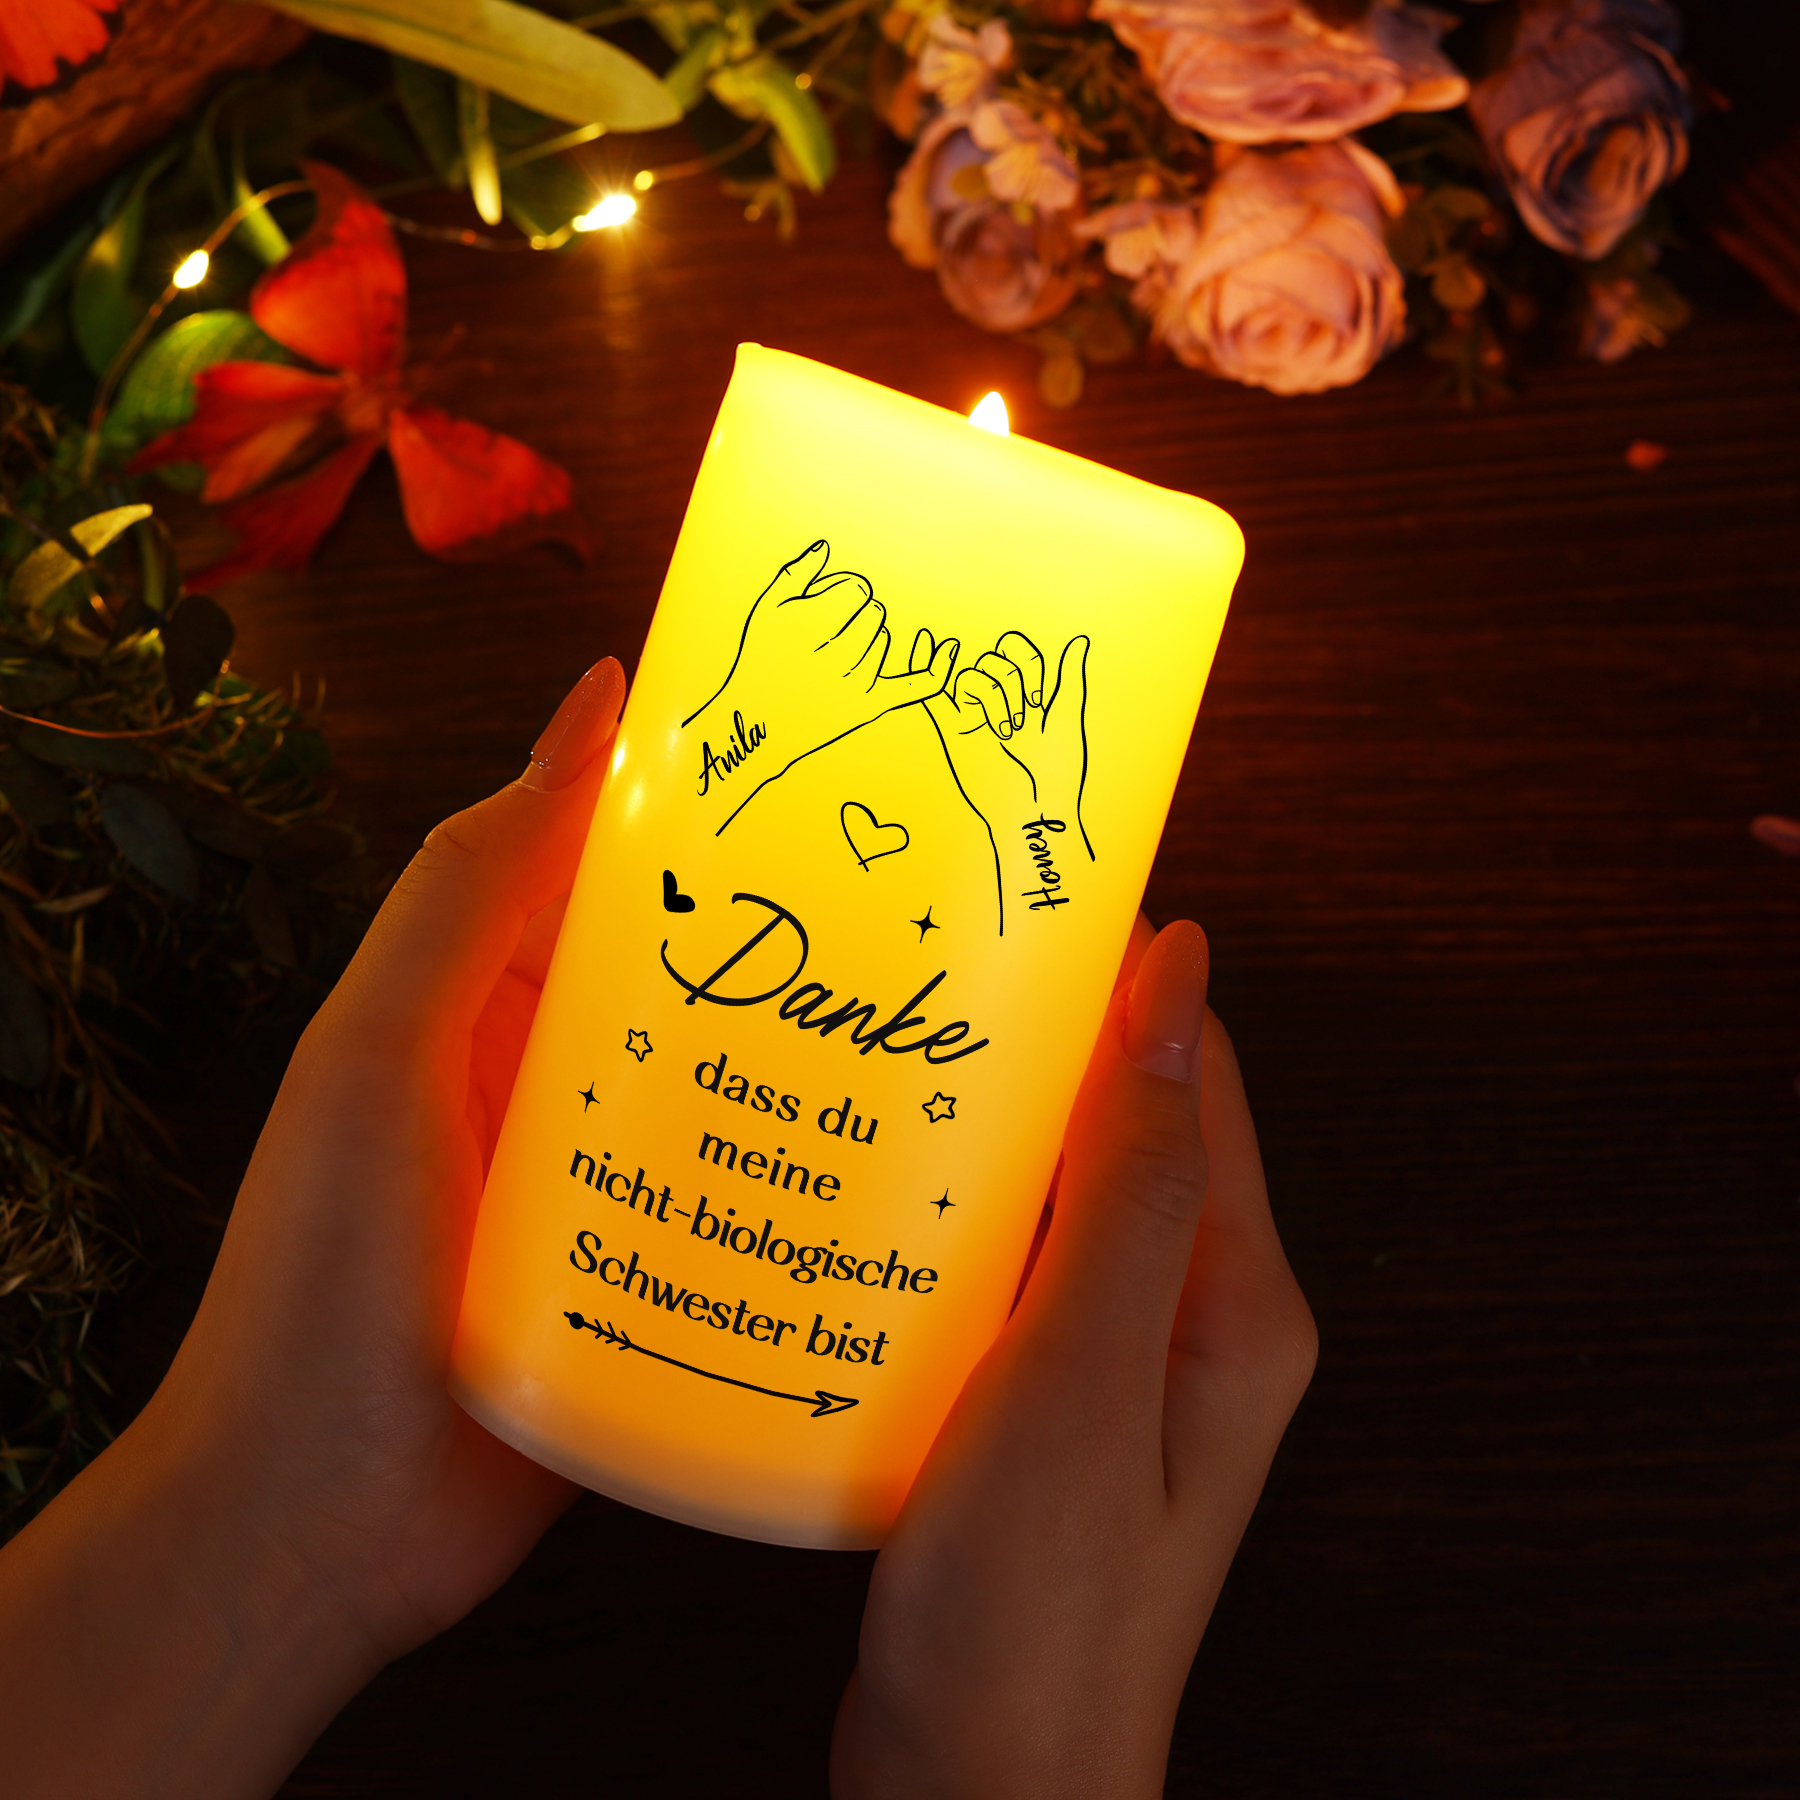 Anila
Honey
Danke
dass du
meine
nicht-biologische
Schwester bist